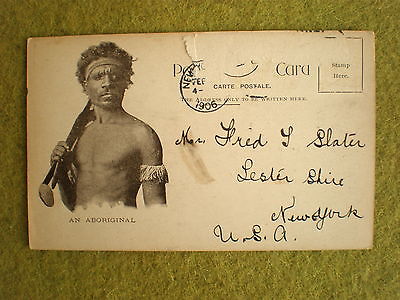 Card
Stamp
Here.
CARTE POSTALE.
THE ADDRESS ONLY TO BE WRITTEN HERE.
FE
4-
1906
Mrs Fred T Slater
Lester Shire
New York
U.S.A.
AN ABORIGINAL